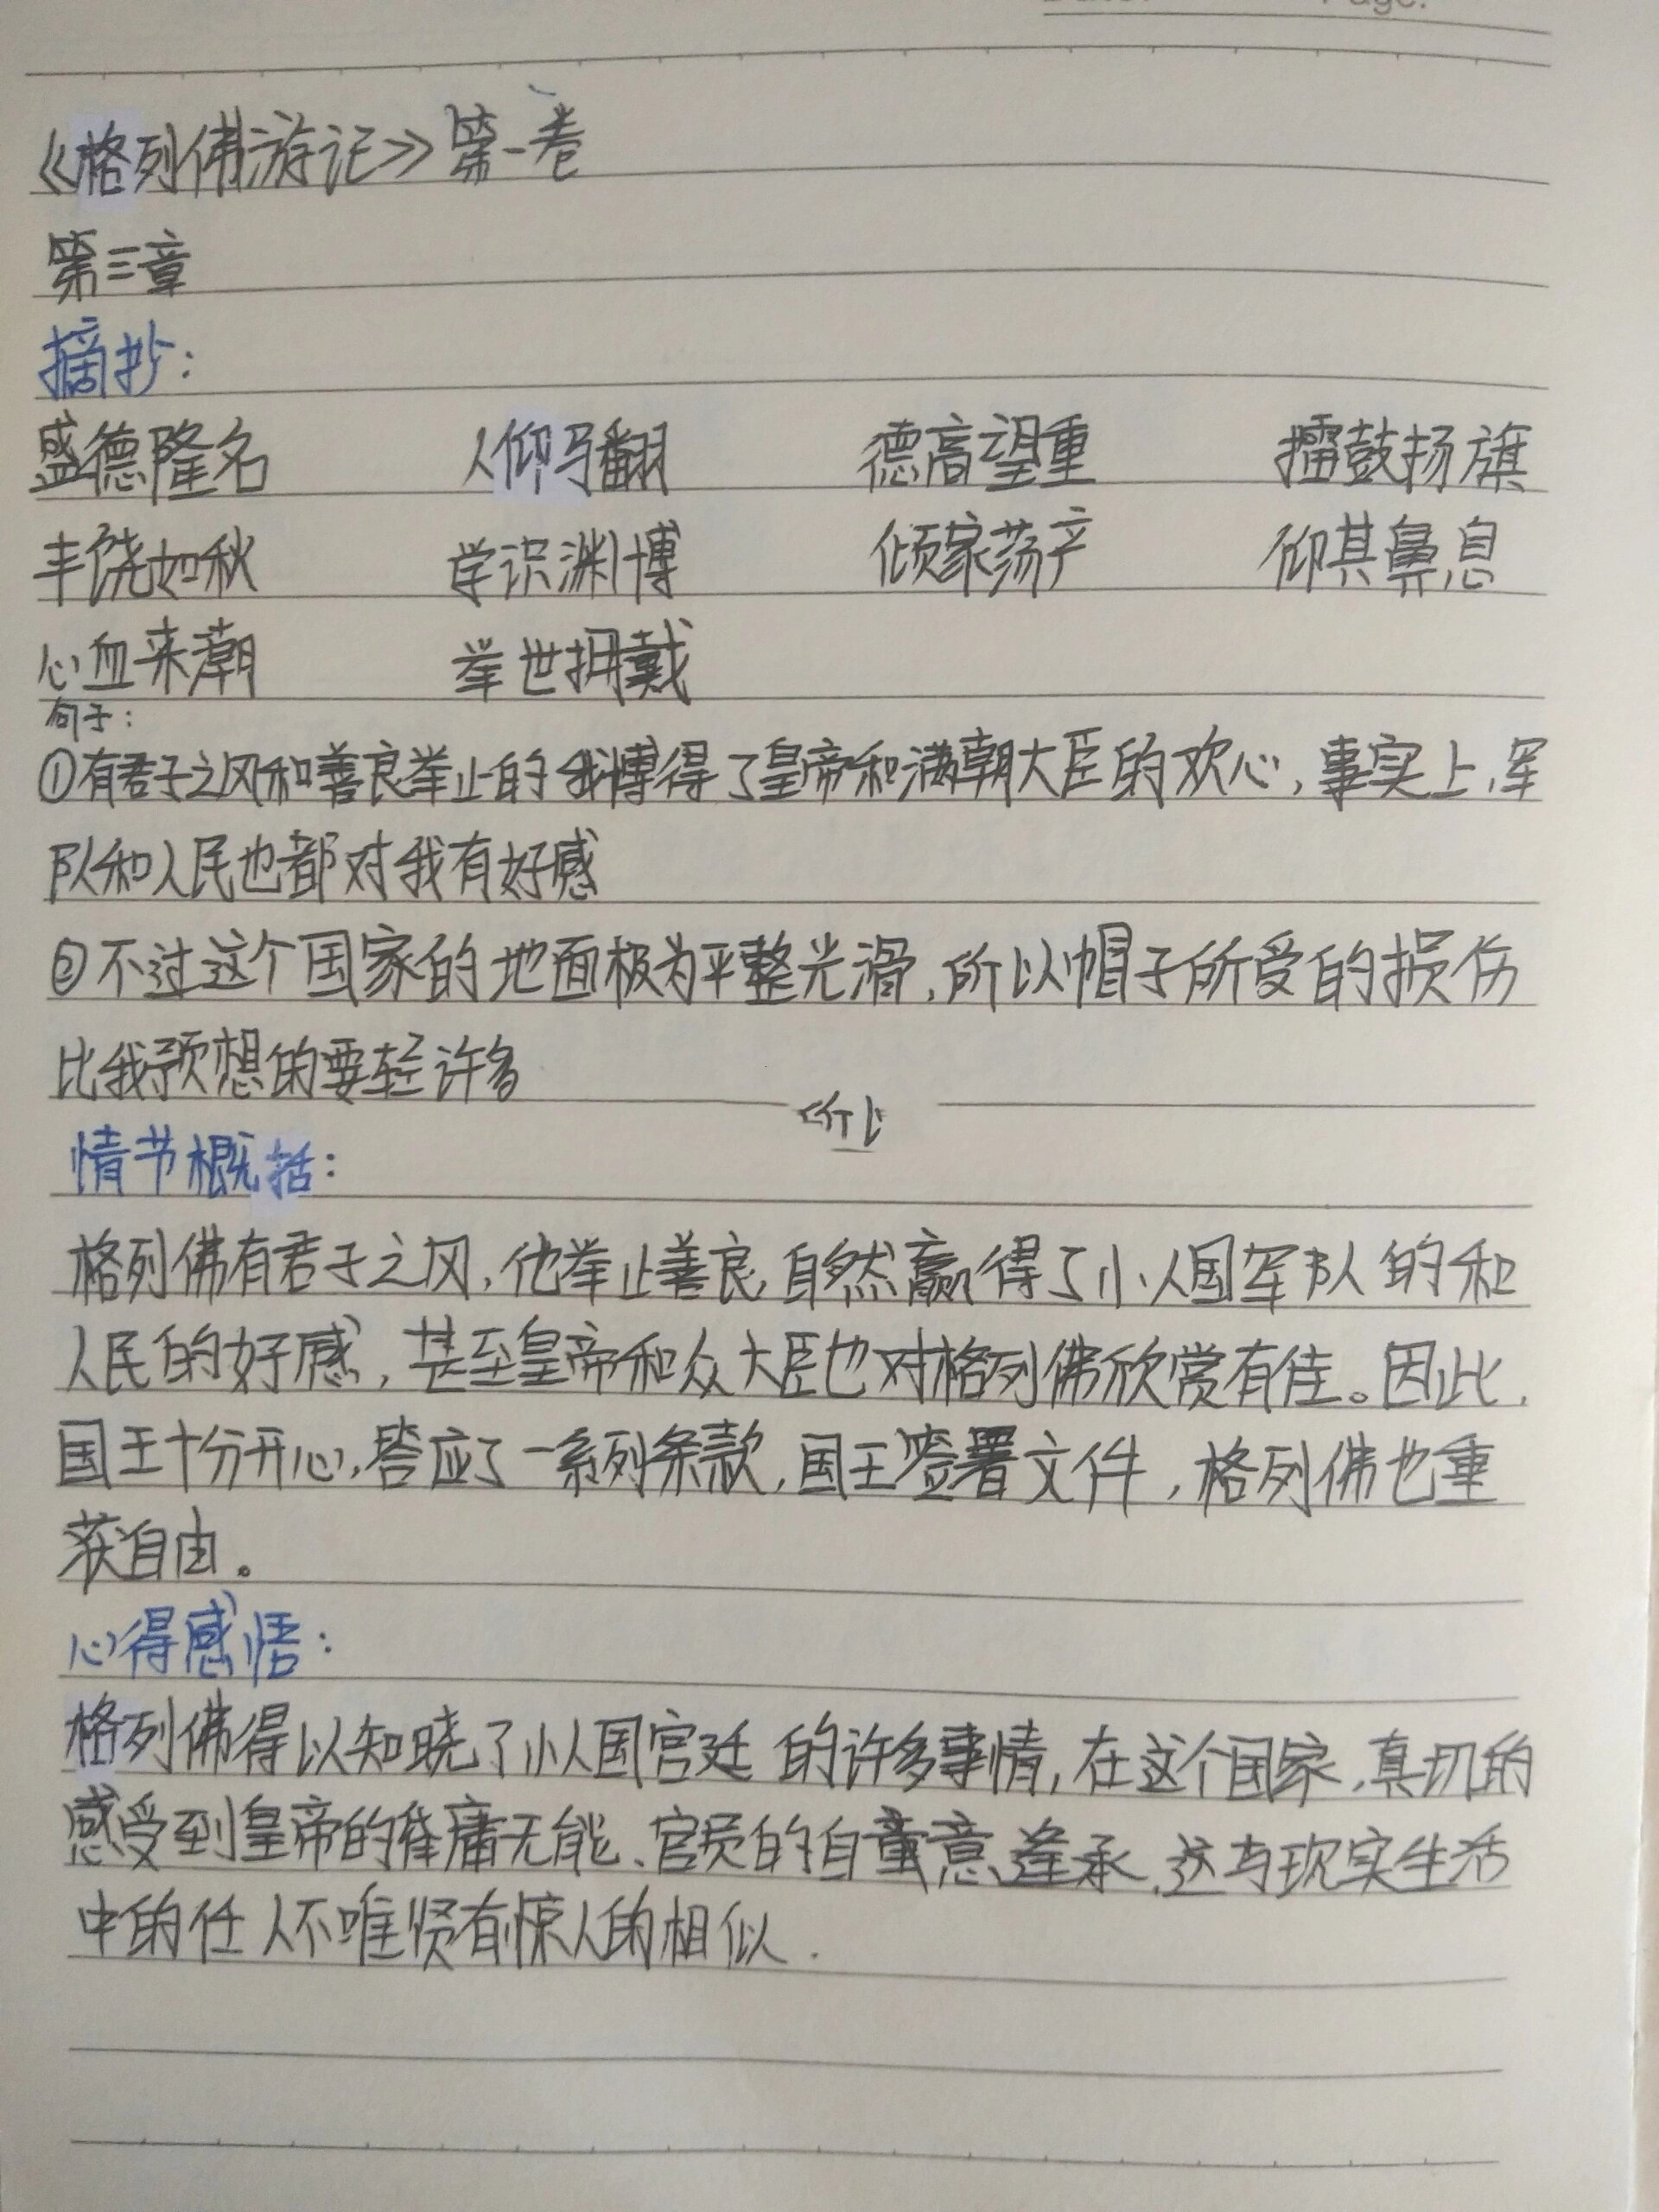 《格列佛游记》第一卷
第三章
摘抄：
盛德隆名 人仰马翻 德高望重 擂鼓扬旗
丰饶如秋 学识渊博 倾家荡产 仰其鼻息
心血来潮 举世拥戴
句子：
①有君子之风和善良举止的我博得了皇帝和满朝大臣的欢心，事实上，军
队和人民也都对我有好感
②不过这个国家的地面极为平整光滑，所以帽子所受的损伤
比我预想的要轻许多
情节概括：
格列佛有君子之风，他举止善良，自然赢得了小人国军队的和
人民的好感，甚至皇帝和众大臣也对格列佛欣赏有佳。因此，
国王十分开心，答应了一系列条款，国王签署文件，格列佛也重
获自由。
心得感悟：
格列佛得以知晓了小人国宫廷的许多事情，在这个国家，真切的
感受到皇帝的庸无能、官员的自意逢承，这与现实生活
中的任人不唯贤有惊人的相似．